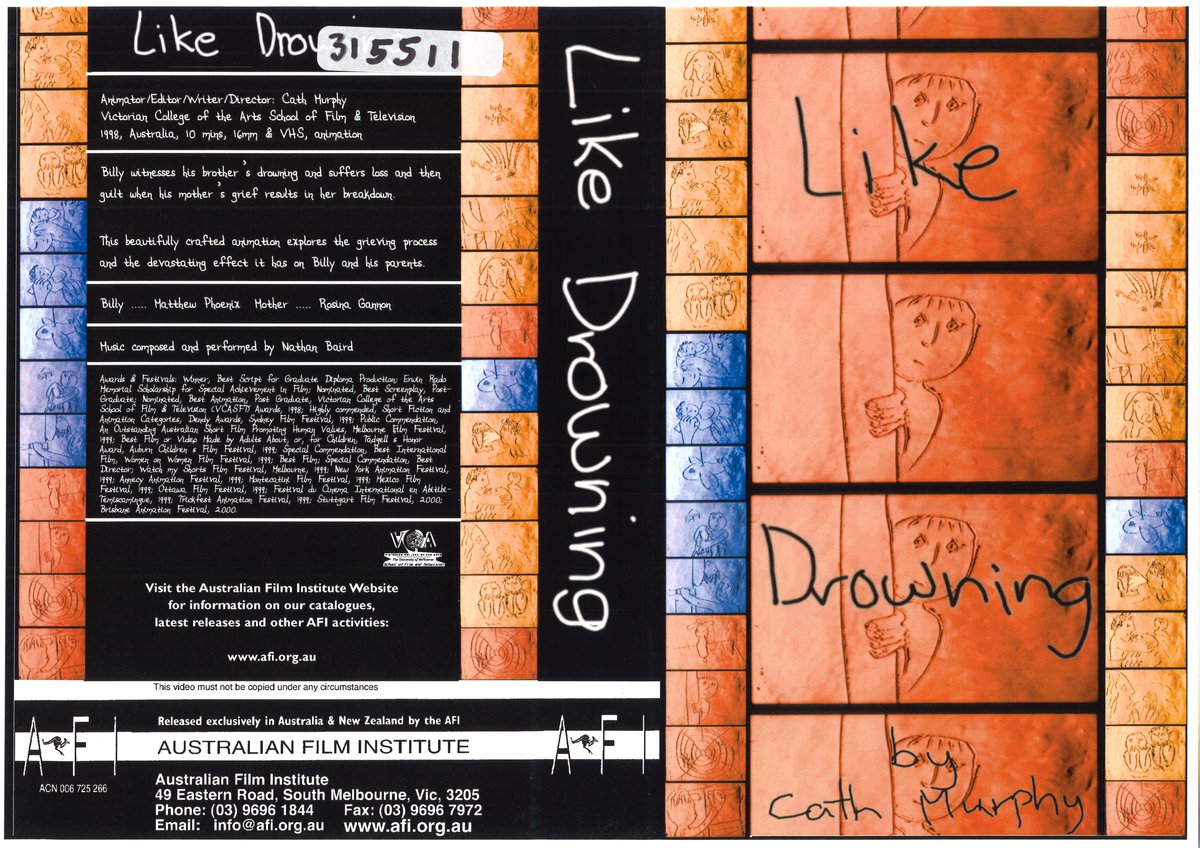 Like Drow
315511
Animator/Editor/Writer/Director: Cath Murphy
Victorian College of the Arts School of Film & Television
1998, Australia, 10 mins, 16mm & VHS, animation
Billy witnesses his brother's drowning and suffers loss and then
guilt when his mother's grief results in her breakdown.
This beautifully crafted animation explores the grieving process
and the devastating effect it has on Billy and his parents.
Billy ..... Matthew Phoenix Mother ..... Rosina Gannon
Music composed and performed by Nathan Baird
Awards & Festivals: Winner, Best Script for Graduate Diploma Production; Erwin Rado
Memorial Scholarship for Special Achievement in Film; Nominated, Best Screenplay, Post-
Graduate; Nominated, Best Animation, Post Graduate, Victorian College of the Arts
School of Film & Television (VCASFT) Awards, 1998; Highly commended, Short Fiction and
Animation Categories, Dendy Awards, Sydney Film Festival, 1999; Public Commendation,
An Outstanding Australian Short Film Promoting Human Values, Melbourne Film Festival,
1999; Best Film or Video Made by Adults About, or, for Children, Tadgell s Honor
Award, Auburn Children s Film Festival, 1999; Special Commendation, Best International
Film, Women on Women Film Festival, 1999; Best Film; Special Commendation, Best
Director; Watch my Shorts Film Festival, Melbourne, 1999; New York Animation Festival,
1999; Annecy Animation Festival, 1999; Montecatini Film Festival, 1999; Mexico Film
Festival, 1999; Ottawa Film Festival, 1999; Festival du Cinema International en Abitibi-
Temiscamingue, 1999; Trickfest Animation Festival, 1999; Stuttgart Film Festival, 2000;
Brisbane Animation Festival, 2000.
VCA
VICTORIAN COLLEGE OF THE ARTS
The University of Melbourne
School of Film and Television
Visit the Australian Film Institute Website
for information on our catalogues,
latest releases and other AFI activities:
www.afi.org.au
This video must not be copied under any circumstances
Released exclusively in Australia & New Zealand by the AFI
AFI
AUSTRALIAN FILM INSTITUTE
ACN 006 725 266
Australian Film Institute
49 Eastern Road, South Melbourne, Vic, 3205
Phone: (03) 9696 1844 Fax: (03) 9696 7972
Email: info@afi.org.au www.afi.org.au
Like Drowning
AFI
Like
Drowning
by
Cath Murphy